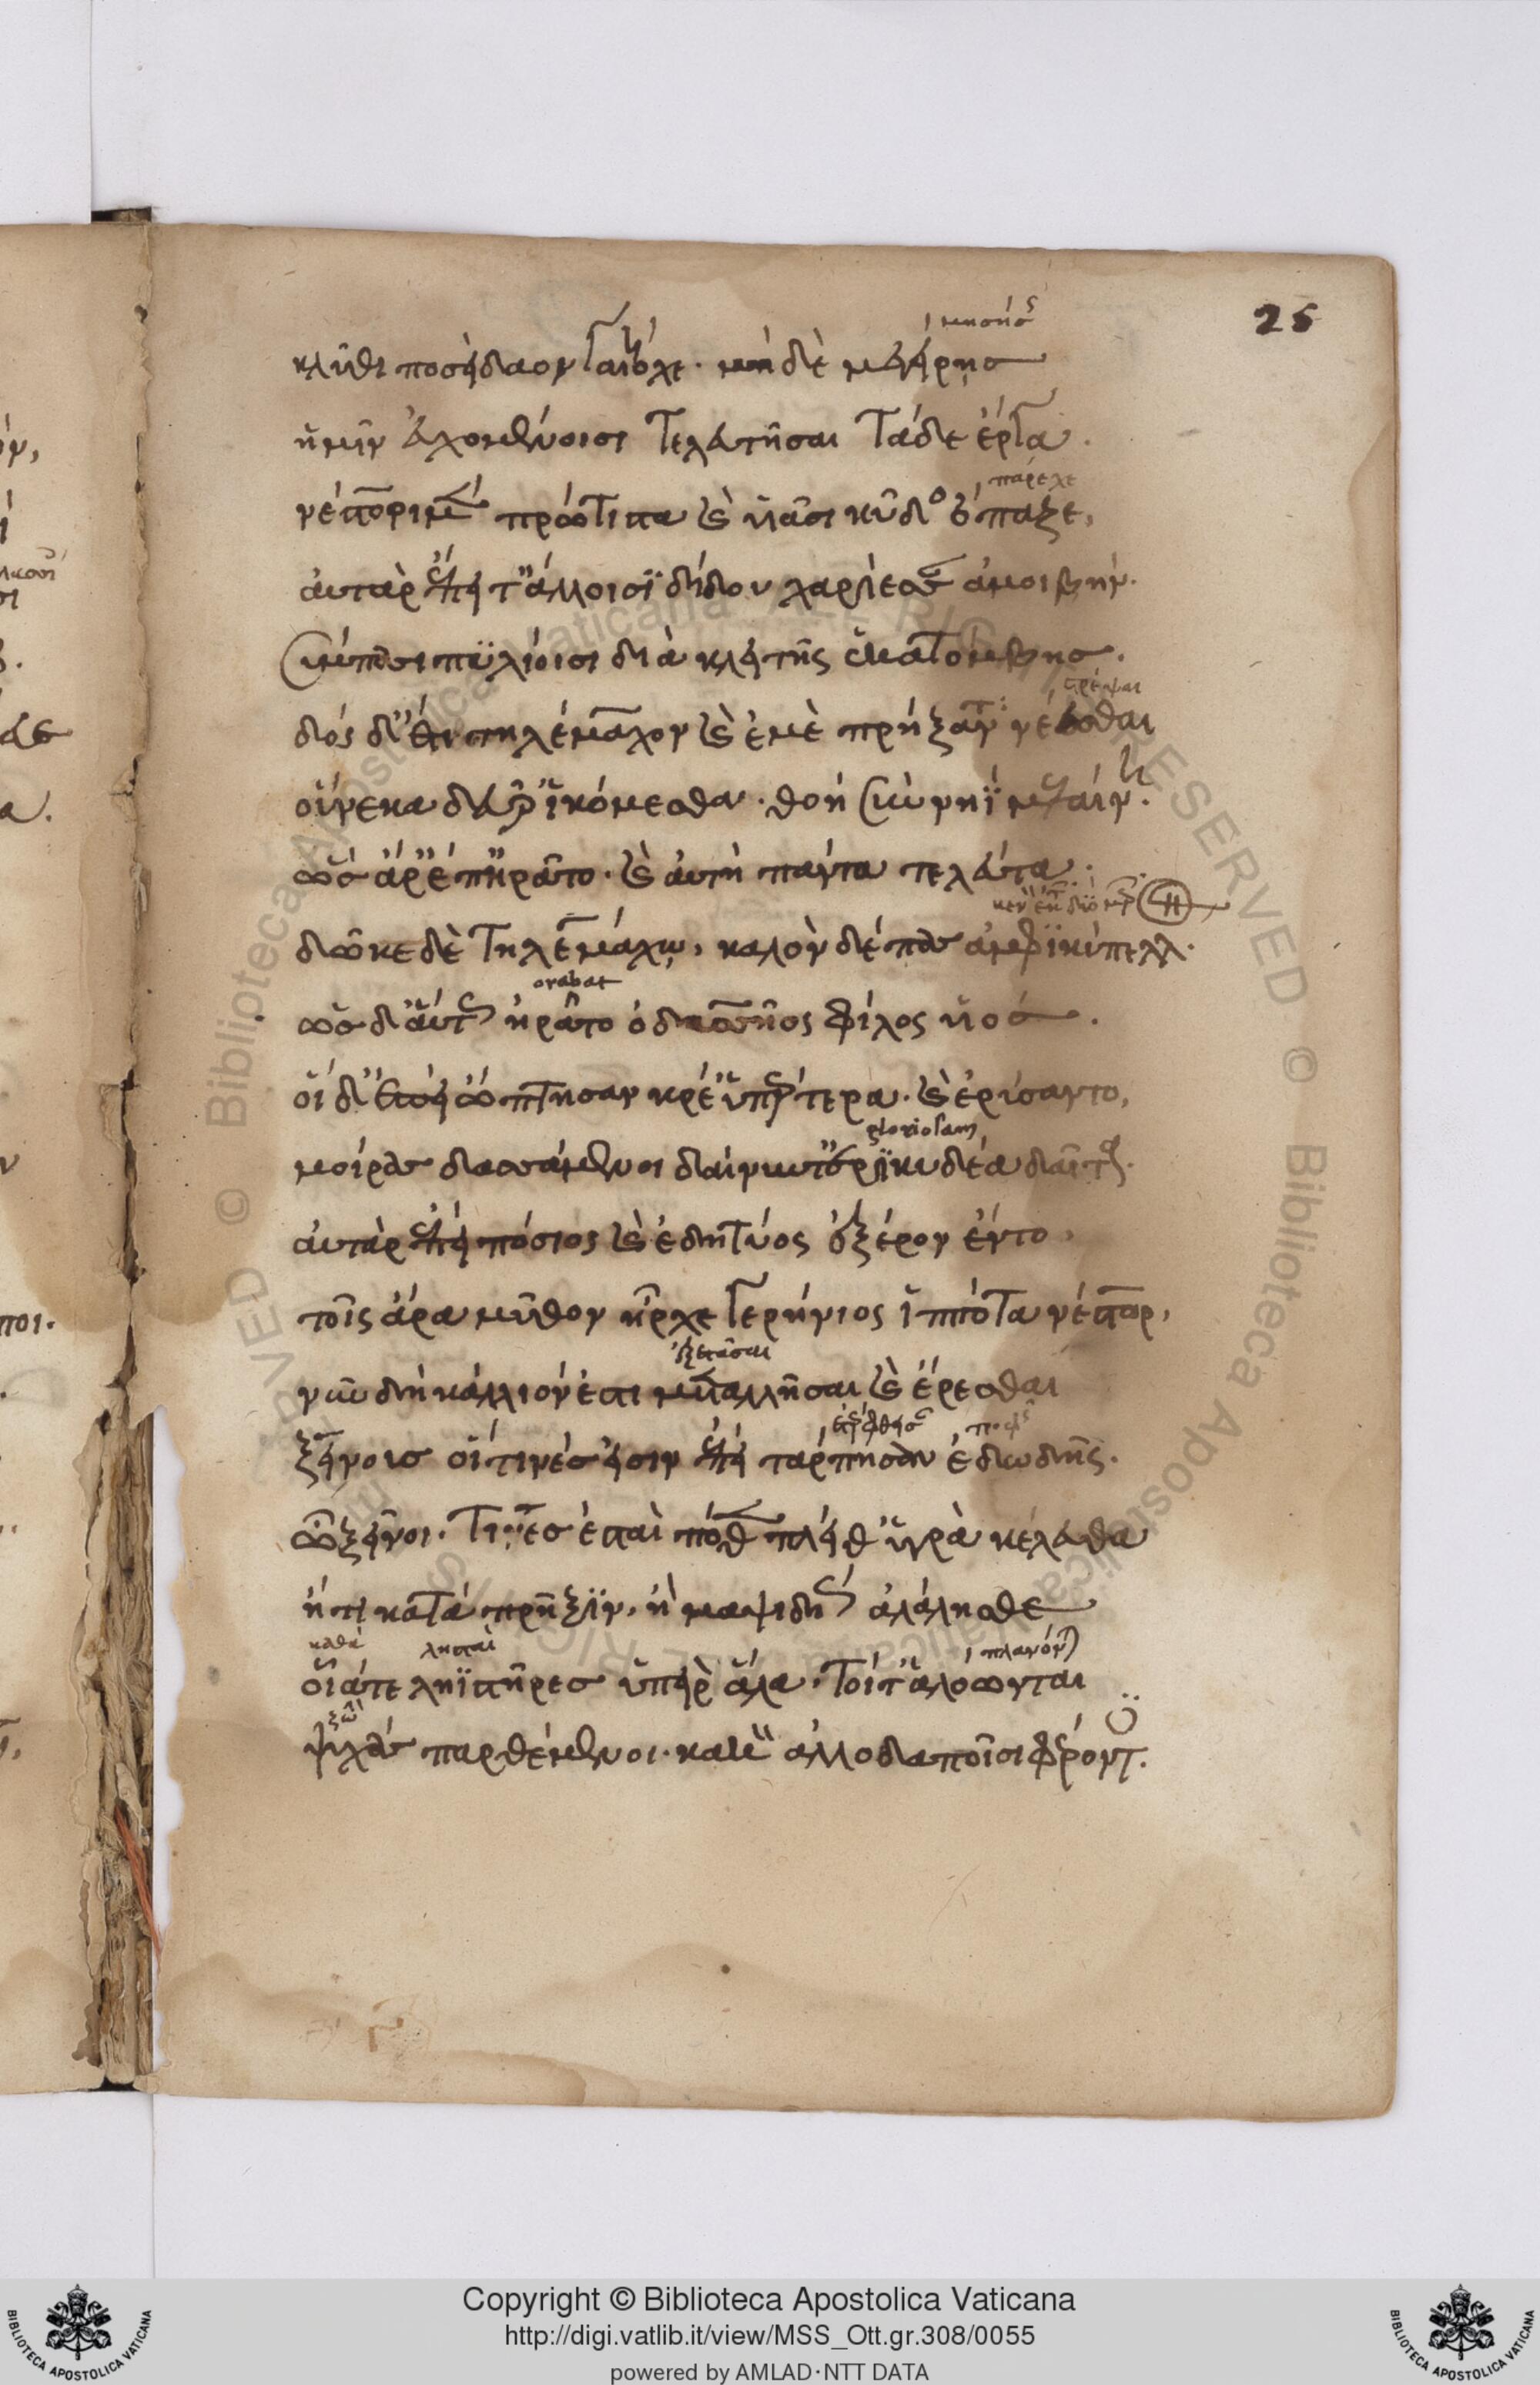 25
μισήσης
κλῦθι ποσείδαον γαιήοχε· μὴ δὲ μεγήρης
ἡμῖν εὐχομένοισι τελευτῆσαι τάδε ἔργα.
πάρεχε
νέστορι μὲν πρώτιστα καὶ υἱᾶσι κῦδος ὄπαζε,
αὐτὰρ ἔπειτ' ἄλλοισι δίδου χαρίεσσαν ἀμοιβήν.
σύμπασι πυλίοισι διὰ κλειτῆς ἑκατόμβης.
δὸς δ' ἔτι τηλέμαχον καὶ ἐμὲ πρήξαντα νέεσθαι
οὕνεκα δεῦρ' ἱκόμεσθα· θοῇ σὺν νηῒ μελαίνῃ.
ὣς ἄρ' ἔπειτ' ἠρᾶτο· καὶ αὐτὴ πάντα τελεύτα.
δῶκε δὲ τηλεμάχῳ, καλὸν δέπας ἀμφικύπελλ.
orabat
ὣς δ' αὔτως ἠρᾶτο ὀδυσσῆος φίλος υἱός.
οἱ δ' ἐπεὶ ὤπτησαν κρέ' ὑπέρτερα· καὶ ἐρύσαντο,
gloriosam
μοίρας δασσάμενοι δαίνυντ' ἐρικυδέα δαῖτα.
αὐτὰρ ἐπεὶ πόσιος καὶ ἐδητύος ἐξ ἔρον ἕντο,
τοῖς ἄρα μύθων ἦρχε γερήνιος ἱππότα νέστωρ,
ἐξετάσαι
νῦν δὴ κάλλιόν ἐστι μεταλλῆσαι καὶ ἔρεσθαι
ξείνους οἵ τινές εἰσιν ἐπεὶ τάρπησαν ἐδωδῆς.
ὦ ξεῖνοι· τίνες ἐστὲ πόθεν πλεῖθ' ὑγρὰ κέλευθα
ἤ τι κατὰ πρῆξιν, ἢ μαψιδίως ἀλάλησθε
καθὰ λῃσταὶ πλανῶνται
οἷά τε ληϊστῆρες ὑπεὶρ ἅλα, τοί τ' ἀλόωνται
ψυχὰς παρθέμενοι· κακὸν ἀλλοδαποῖσι φέροντ.
Copyright © Biblioteca Apostolica Vaticana
http://digi.vatlib.it/view/MSS_Ott.gr.308/0055
powered by AMLAD·NTT DATA
BIBLIOTECA APOSTOLICA VATICANA
BIBLIOTECA APOSTOLICA VATICANA